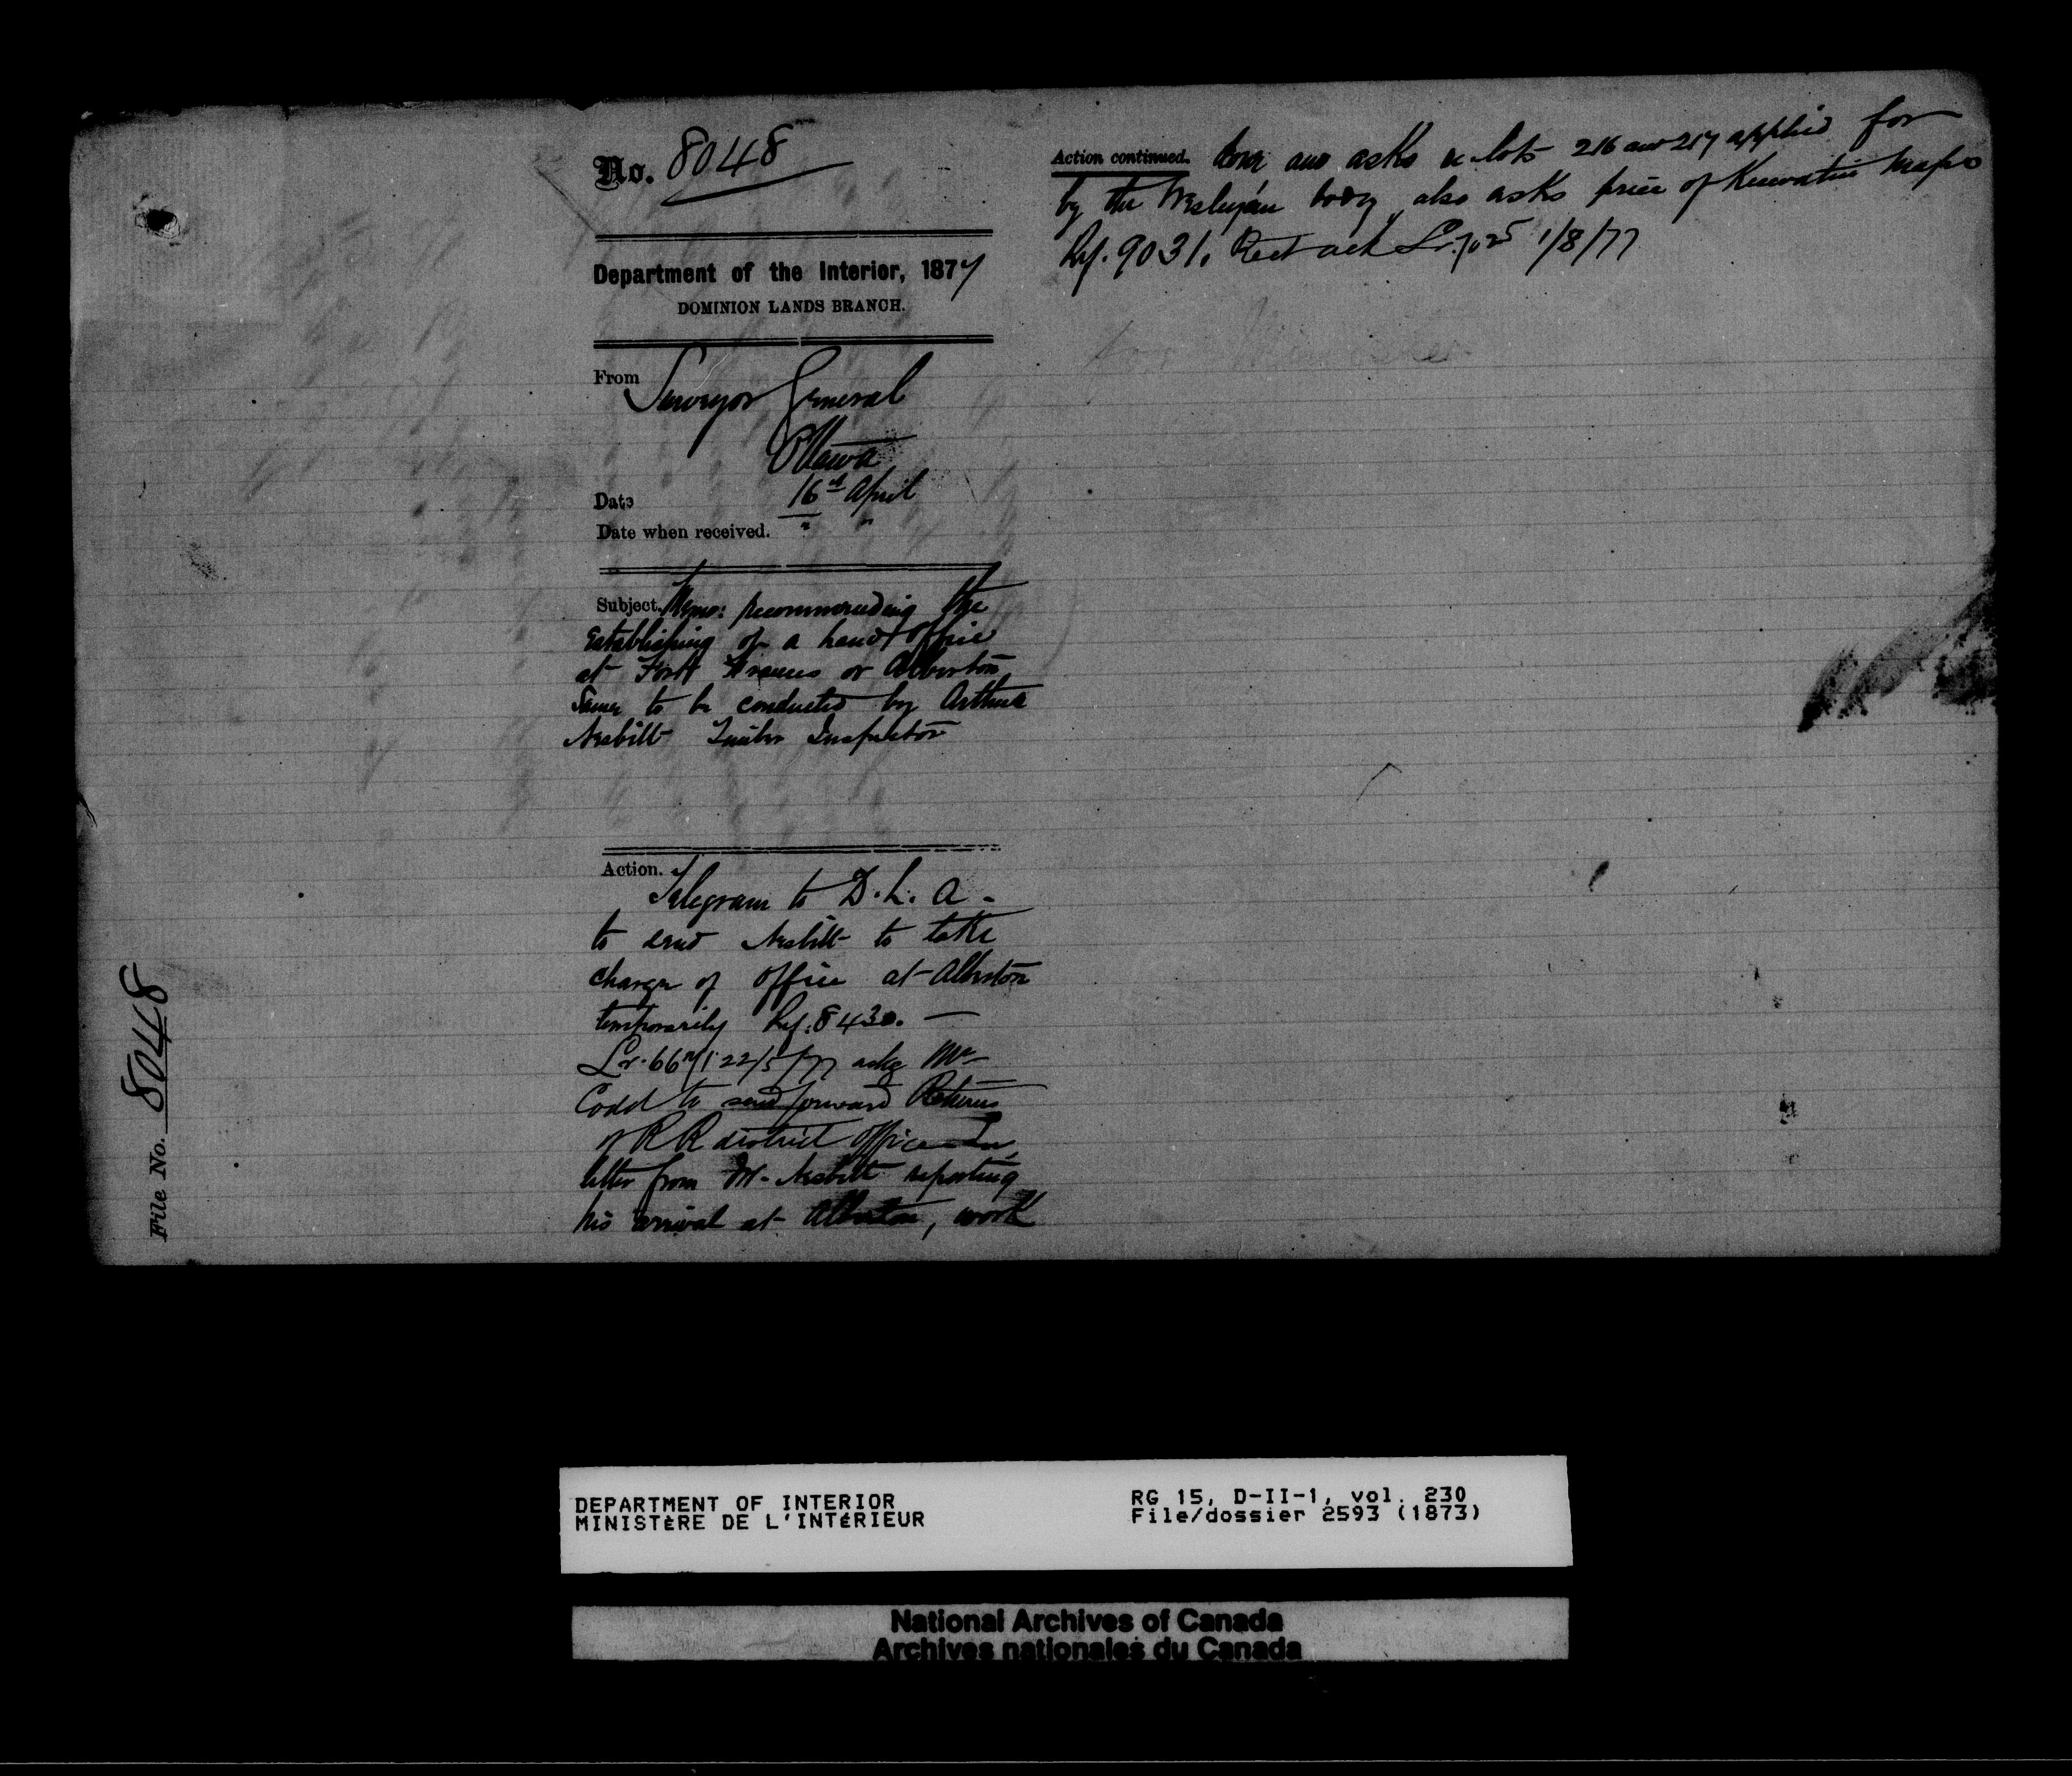 No. 8048
Department of the Interior, 1877
DOMINION LANDS BRANCH.
From Surveyor General
Ottawa
Date 16th April
Date when received. " "
Subject. Memo: recommending the
Establishing of a Land Office
at Fort Frances or Alberton
Same to be conducted by Arthur
Nesbitt Timber Inspector
Action. Telegram to D. L. A -
to send Nesbitt to take
charge of office at Alberton
temporarily Ref. 8430. —
Lr. 22/5/77 asks Mr
Codd to send forward Returns
of RR district office
letter from Mr Nesbitt reporting
his arrival at Alberton, work
File No. 8048
Action continued. done and asks re lots 216 and 217 applied for
by the Wesleyan body also asks price of Keewatin Maps
Ref. 9031. Rect ack Lr. 1/8/77
DEPARTMENT OF INTERIOR
MINISTÈRE DE L'INTÉRIEUR
RG 15, D-II-1, vol. 230
File/dossier 2593 (1873)
National Archives of Canada
Archives nationales du Canada